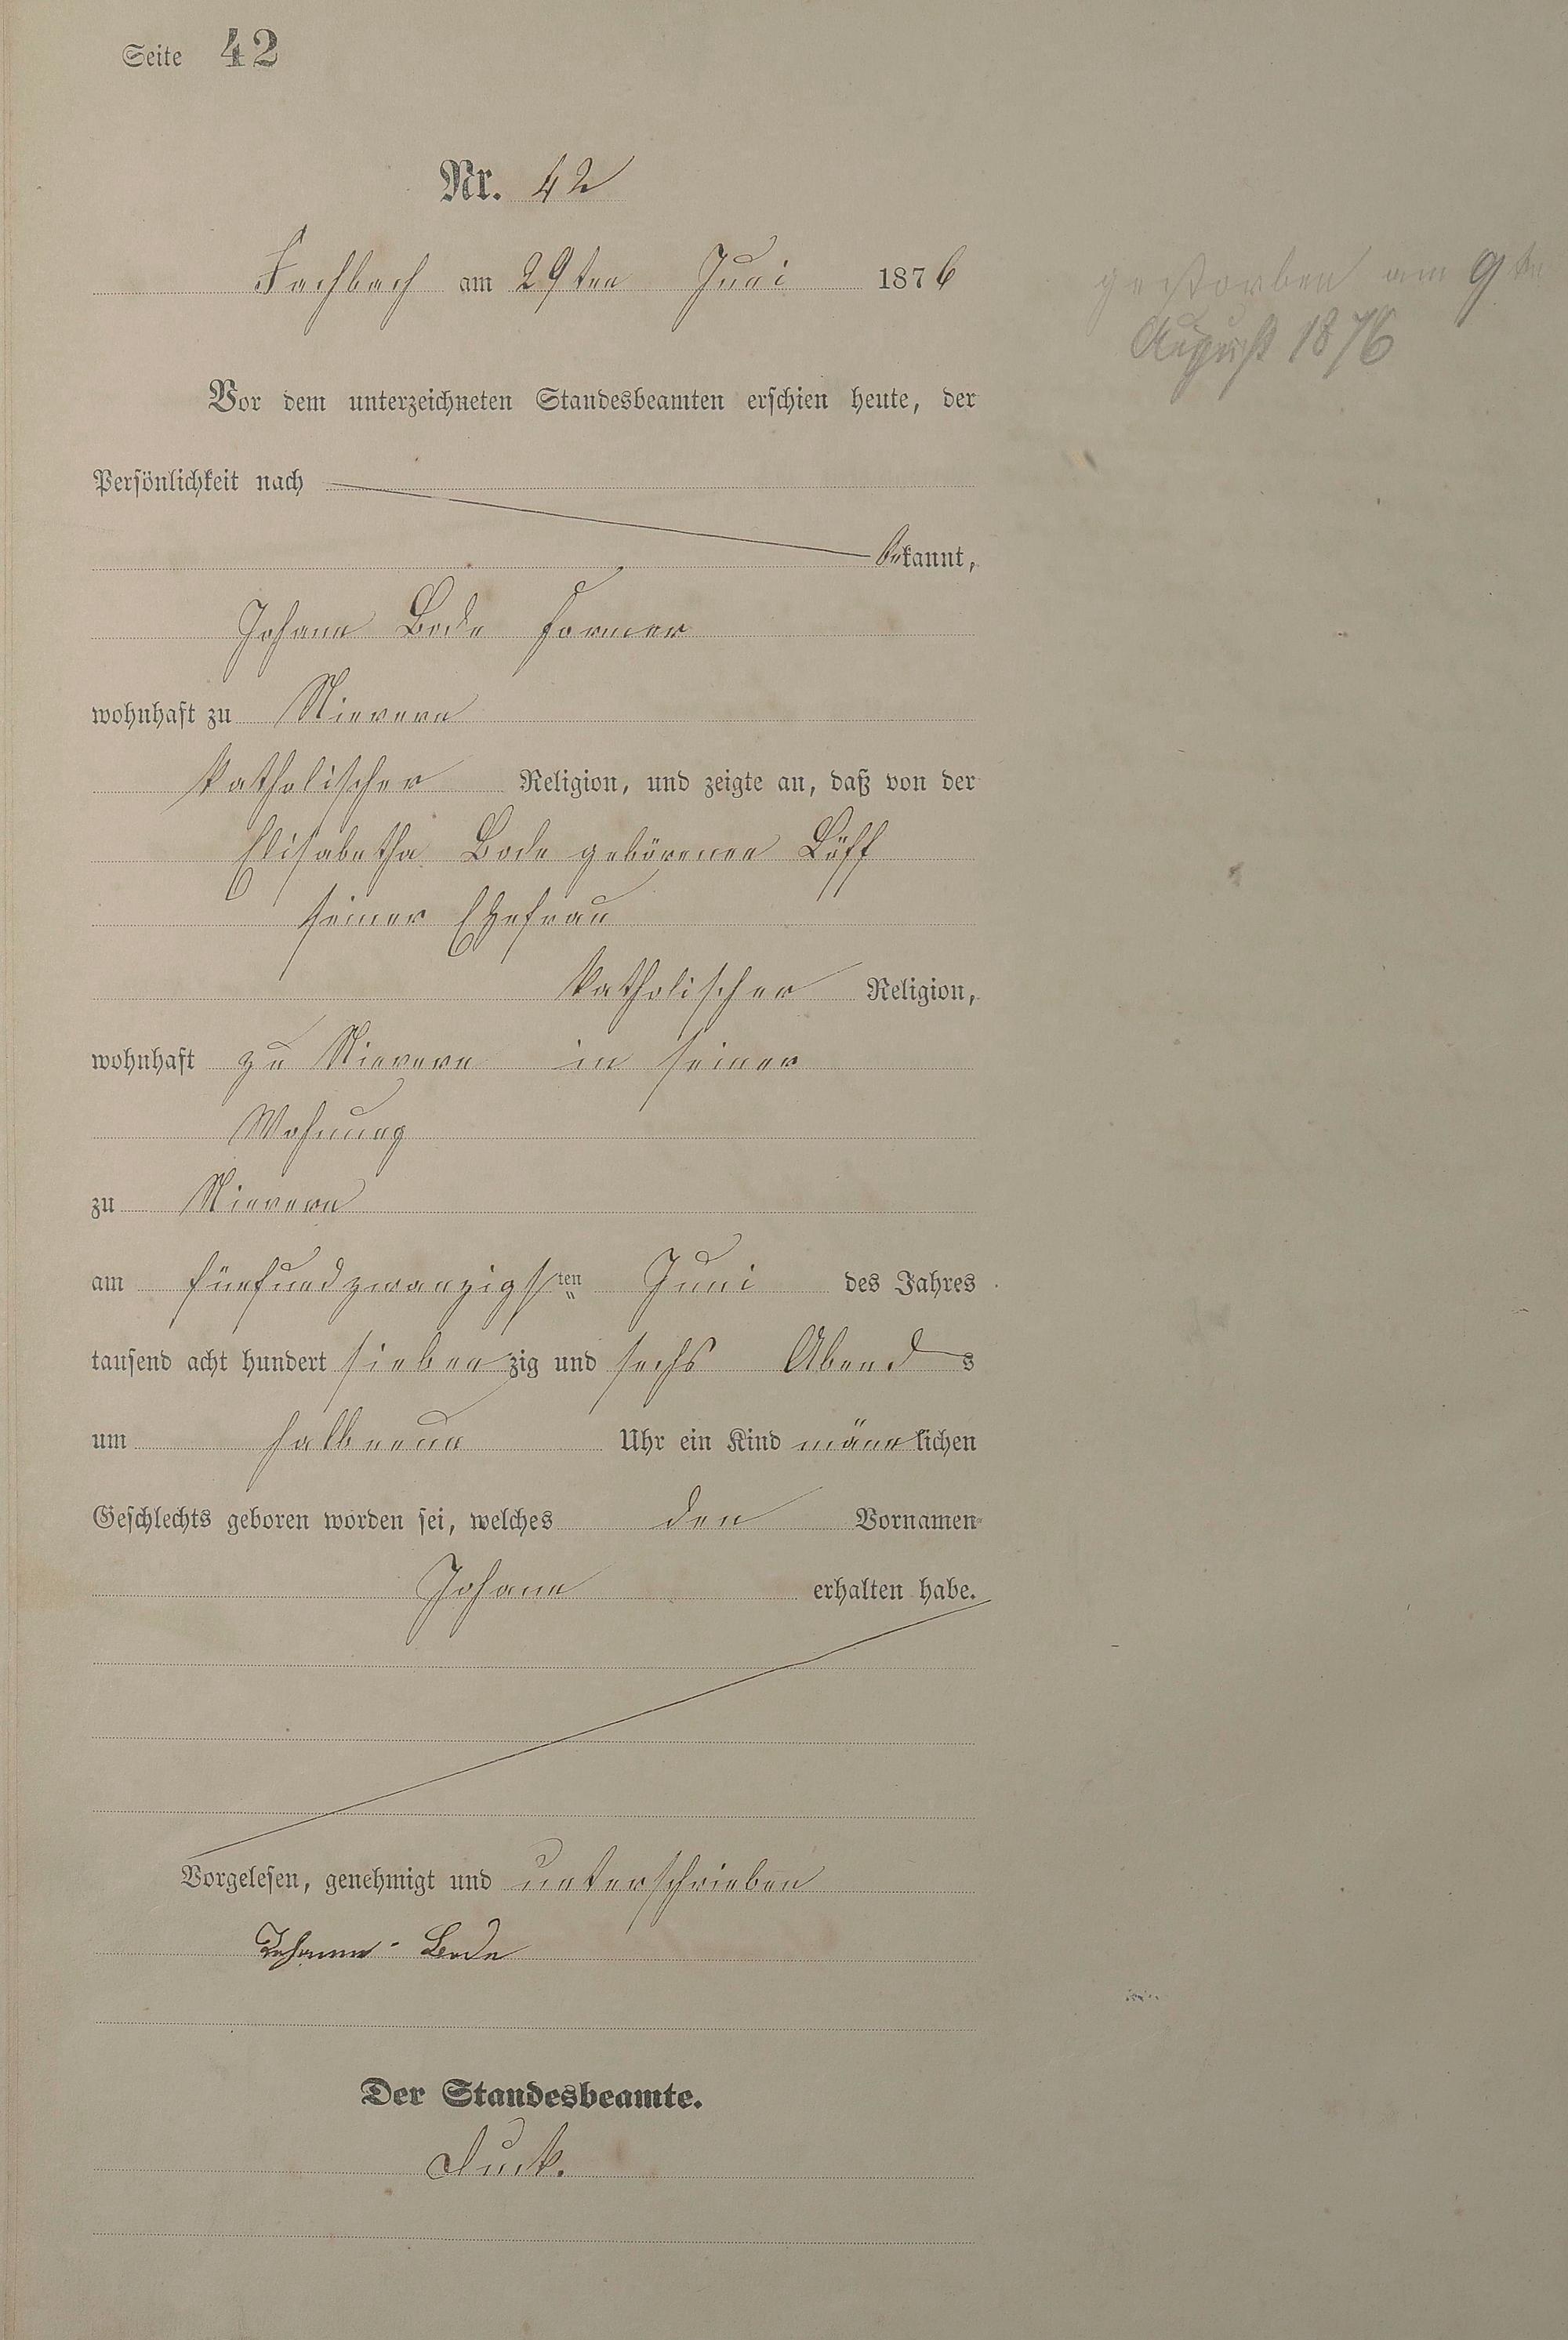 Seite 42
Nr. 42
Fachbach am 29ten Juni 1876
gestorben am 9ten
August 1876
Vor dem unterzeichneten Standesbeamten erschien heute, der
Persönlichkeit nach
bekannt,
Johann Bode Former
wohnhaft zu Nievern
katholischer Religion, und zeigte an, daß von der
Elisabetha Bode geborenen Löff
seiner Ehefrau
katholischer Religion,
wohnhaft zu Nievern in seiner
Wohnung
zu Nievern
am fünfundzwanzigsten Juni des Jahres
tausend acht hundert siebenzig und sechs Abends
um halb neun Uhr ein Kind männlichen
Geschlechts geboren worden sei, welches den Vornamen
Johann erhalten habe.
Vorgelesen, genehmigt und unterschrieben
Johann Bode
Der Standesbeamte.